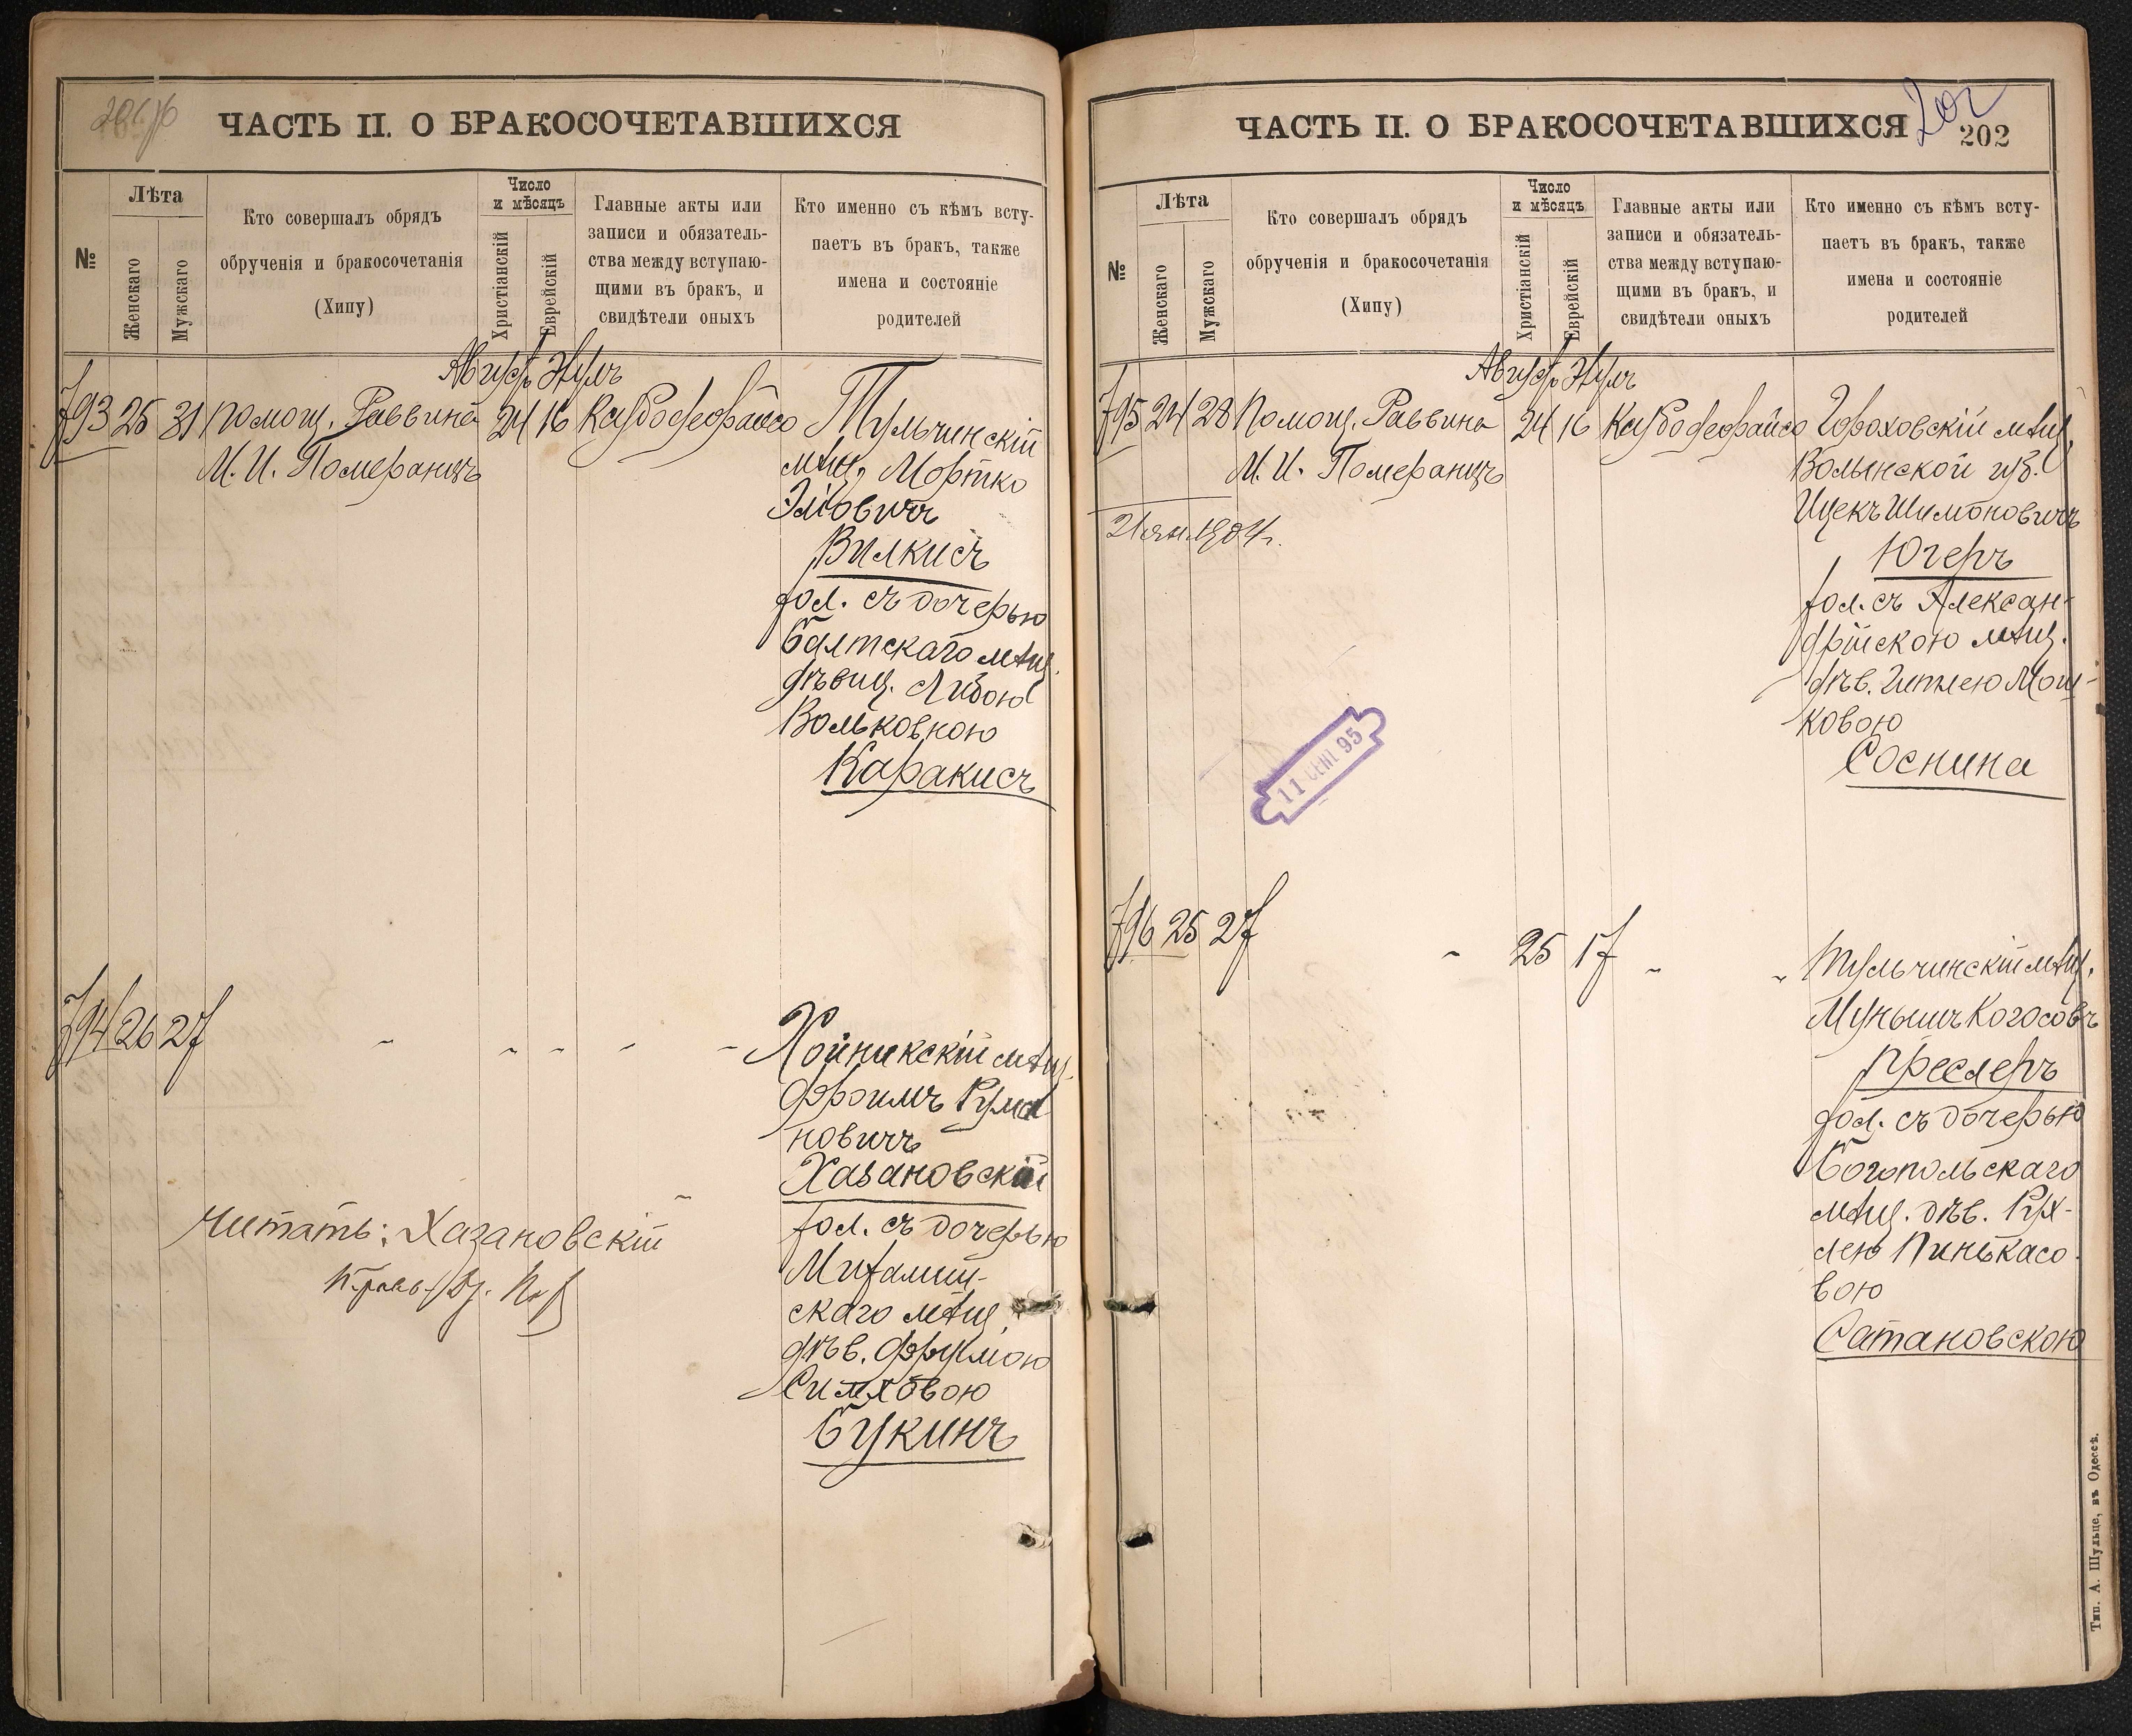 ЧАСТЬ II. О БРАКОСОЧЕТАВШИХСЯ
№
Лѣта
Женскаго
Мужскаго
Кто совершалъ обрядъ
обрученія и бракосочетанія
(Хипу)
Число
и мѣсяцъ
Христіанскій
Еврейскій
Главные акты или
записи и обязатель-
ства между вступаю-
щими въ бракъ, и
свидѣтели оныхъ
Кто именно съ кѣмъ всту-
паетъ въ бракъ, также
имена и состояніе
родителей
793 25 31 Помощ. Раввина 24 16 Тульчинскій
М. И. Померанцъ
мѣщ. Мортко
Вилкисъ
хол. съ дочерью
Балтскаго мѣщ.
дѣвиц. Либою
Вольковною
Каракисъ
794 26 27
Хойникскій мѣщ.
Фроимъ Рума
новичъ
Хазановскій
Читать: Хазановскій
хол. съ дочерью
скаго мѣщ.
дѣв. Фрумою
Симховою
Букинъ
ЧАСТЬ II. О БРАКОСОЧЕТАВШИХСЯ
202
202
№
Лѣта
Женскаго
Мужскаго
Кто совершалъ обрядъ
обрученія и бракосочетанія
(Хипу)
Число
и мѣсяцъ
Христіанскій
Еврейскій
Главные акты или
записи и обязатель-
ства между вступаю-
щими въ бракъ, и
свидѣтели оныхъ
Кто именно съ кѣмъ всту-
паетъ въ бракъ, также
имена и состояніе
родителей
795 24 28 Помощ. Раввина 24 16 Гороховскій мѣщ.
М. И. Померанцъ
Волынской губ.
Ицекъ Шимоновичъ
Югеръ
хол. съ Алексан-
дрійскою мѣщ.
дѣв. Гитлею Мош-
ковою
Соснина
11 СЕНТ 95
796 25 27 25 17 Тульчинскій мѣщ.
Преслеръ
хол. съ дочерью
Богопольскаго
мѣщ. дѣв. Рух-
лею Пинькасо
вою
Сатановскою
Тип. А. Шульце, въ Одессѣ.